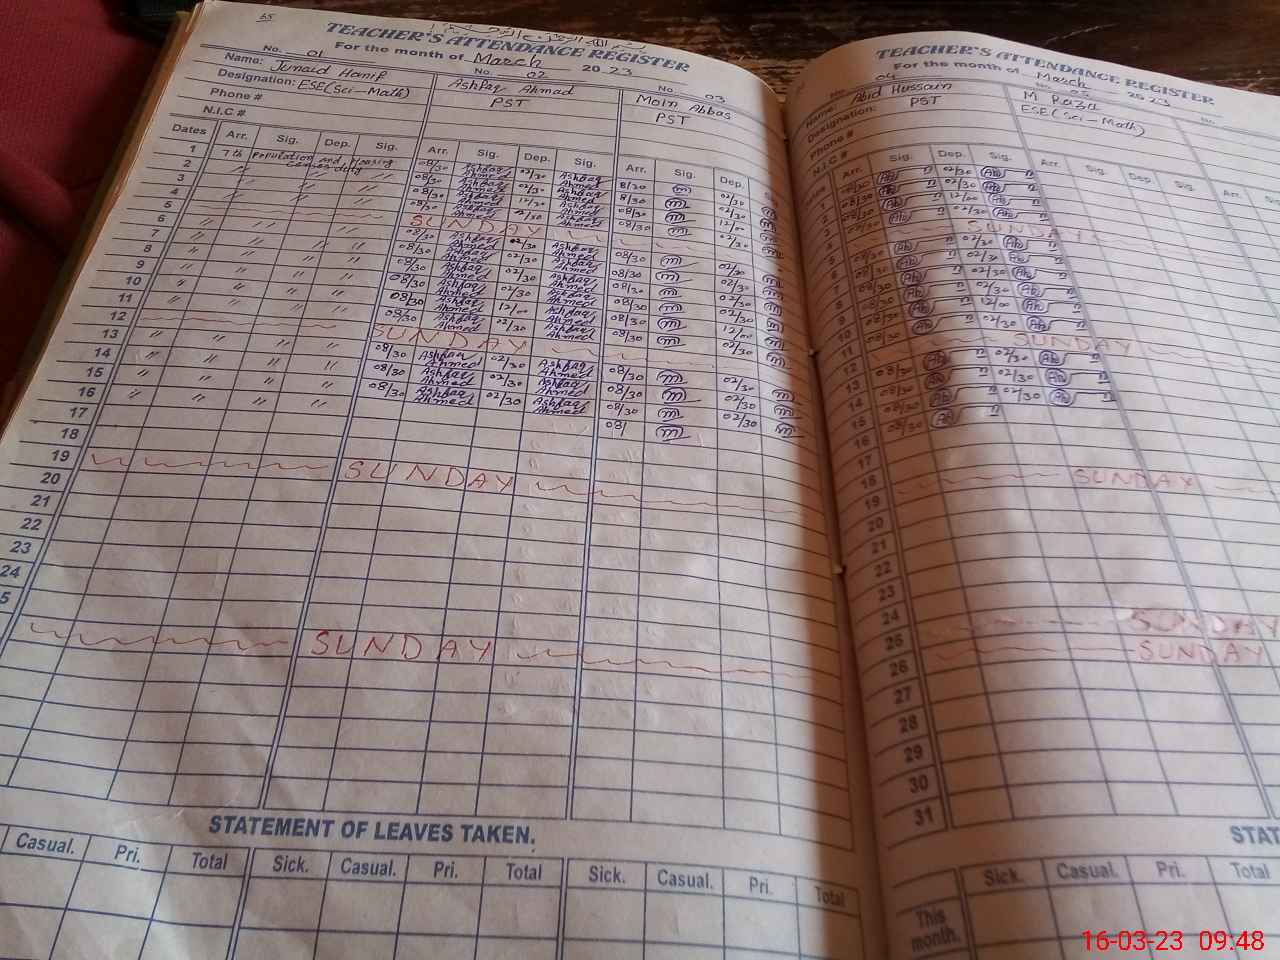 65
TEACHER'S ATTENDANCE REGISTER
For the month of March 2023
No. 01 No. 02 No. 03
Name: Junaid Hanif Ashfaq Ahmad Moin Abbas
Designation: ESE(Sci-Math) PST PST
Phone #
N.I.C #
Dates Arr. Sig. Dep. Sig. Arr. Sig. Dep. Sig. Arr. Sig. Dep.
1 7th Population and Housing Census duty 08/30 Ashfaq Ahmed 02/30 Ashfaq Ahmed 8/30 m 02/30 m
2 " " " " 08/30 Ashfaq Ahmed 02/30 Ashfaq Ahmed 8/30 m 02/30 m
3 " " " " 08/30 Ashfaq Ahmed 12/00 Ashfaq Ahmed 08/30 m 12/00 m
4 " " " " 08/30 Ashfaq Ahmed 02/30 Ashfaq Ahmed 08/30 m 02/30 m
5 SUNDAY
6 " " " " 08/30 Ashfaq Ahmed 02/30 Ashfaq Ahmed 08/30 m 02/30 m
7 " " " " 08/30 Ashfaq Ahmed 02/30 Ashfaq Ahmed 08/30 m 02/30 m
8 " " " " 08/30 Ashfaq Ahmed 02/30 Ashfaq Ahmed 08/30 m 02/30 m
9 " " " " 08/30 Ashfaq Ahmed 12/00 Ashfaq Ahmed 08/30 m 12/00 m
10 " " " " 08/30 Ashfaq Ahmed 02/30 Ashfaq Ahmed 08/30 m 02/30 m
11
12 SUNDAY
13 " " " " 08/30 Ashfaq Ahmed 02/30 Ashfaq Ahmed 08/30 m 02/30 m
14 " " " " 08/30 Ashfaq Ahmed 02/30 Ashfaq Ahmed 08/30 m 02/30 m
15 " " " " 08/30 Ashfaq Ahmed 02/30 Ashfaq Ahmed 08/30 m 02/30 m
16 " " " " 08/ m
17
18
19 SUNDAY
20
21
22
23
24
5
SUNDAY
STATEMENT OF LEAVES TAKEN.
Casual. Pri. Total Sick. Casual. Pri. Total Sick. Casual. Pri. Total
TEACHER'S ATTENDANCE REGISTER
For the month of March 2023
No. 04 No. 05 No.
Name: Abid Hussain M Raza
Designation: PST ESE(Sci-Math)
Phone #
N.I.C #
Arr. Sig. Dep. Sig. Arr. Sig. Dep. Sig. Arr.
1 08/30 Ab 02/30 Ab
2 08/30 Ab 02/30 Ab
3 08/30 Ab 12/00 Ab
4 08/30 Ab 02/30 Ab
5 SUNDAY
6 08/30 Ab 02/30 Ab
7 08/30 Ab 02/30 Ab
8 08/30 Ab 02/30 Ab
9 08/30 Ab 12/00 Ab
10 08/30 Ab 02/30 Ab
11 SUNDAY
12 08/30 Ab 02/30 Ab
13 08/30 Ab 02/30 Ab
14 08/30 Ab 02/30 Ab
15 08/30 Ab
16
17
18 SUNDAY
19
20
21
22
23
24 SUNDAY
25 SUNDAY
26
27
28
29
30
31
STAT
Sick. Casual. Pri. Total
This month.
16-03-23 09:48